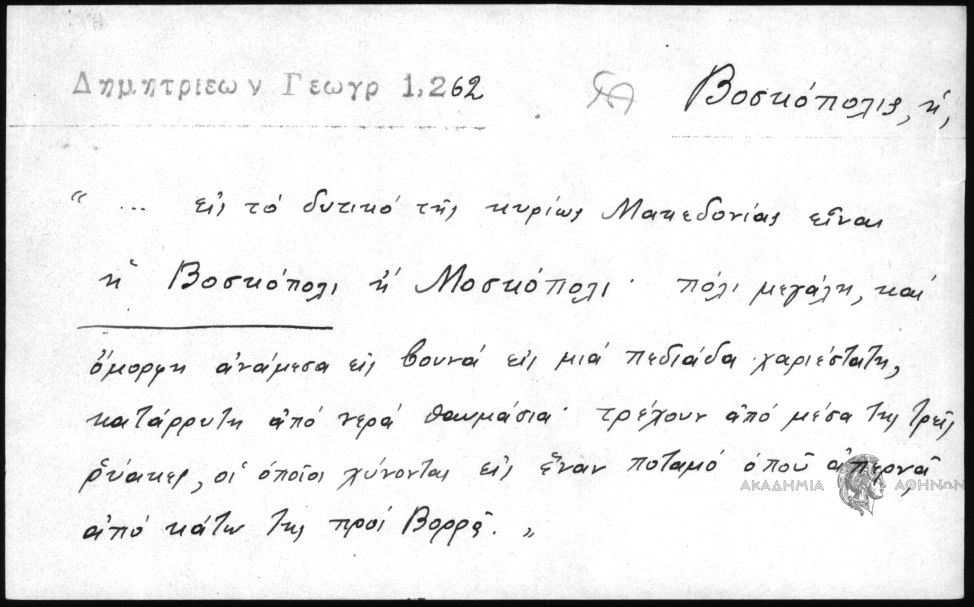 Δημητριεων Γεωγρ 1,262
Βοσκόπολις, ἡ,
“ ... εἰς τὸ δυτικό τῆς κυρίως Μακεδονίας εἶναι
ἡ Βοσκόπολι ἢ Μοσκόπολι · πόλι μεγάλη, καὶ
ὄμορφη ἀνάμεσα εἰς βουνά εἰς μιά πεδιάδα χαριέστατη,
κατάρρυτη ἀπό νερά θαυμάσια · τρέχουν ἀπό μέσα της τρεῖς
ῥύακες, οἱ ὁποῖοι χύνονται εἰς ἕναν ποταμό ὁποῦ ἀπερνᾷ
ΑΚΑΔΗΜΙΑ ΑΘΗΝΩΝ
ἀπό κάτω της πρός Βορρᾶ. „